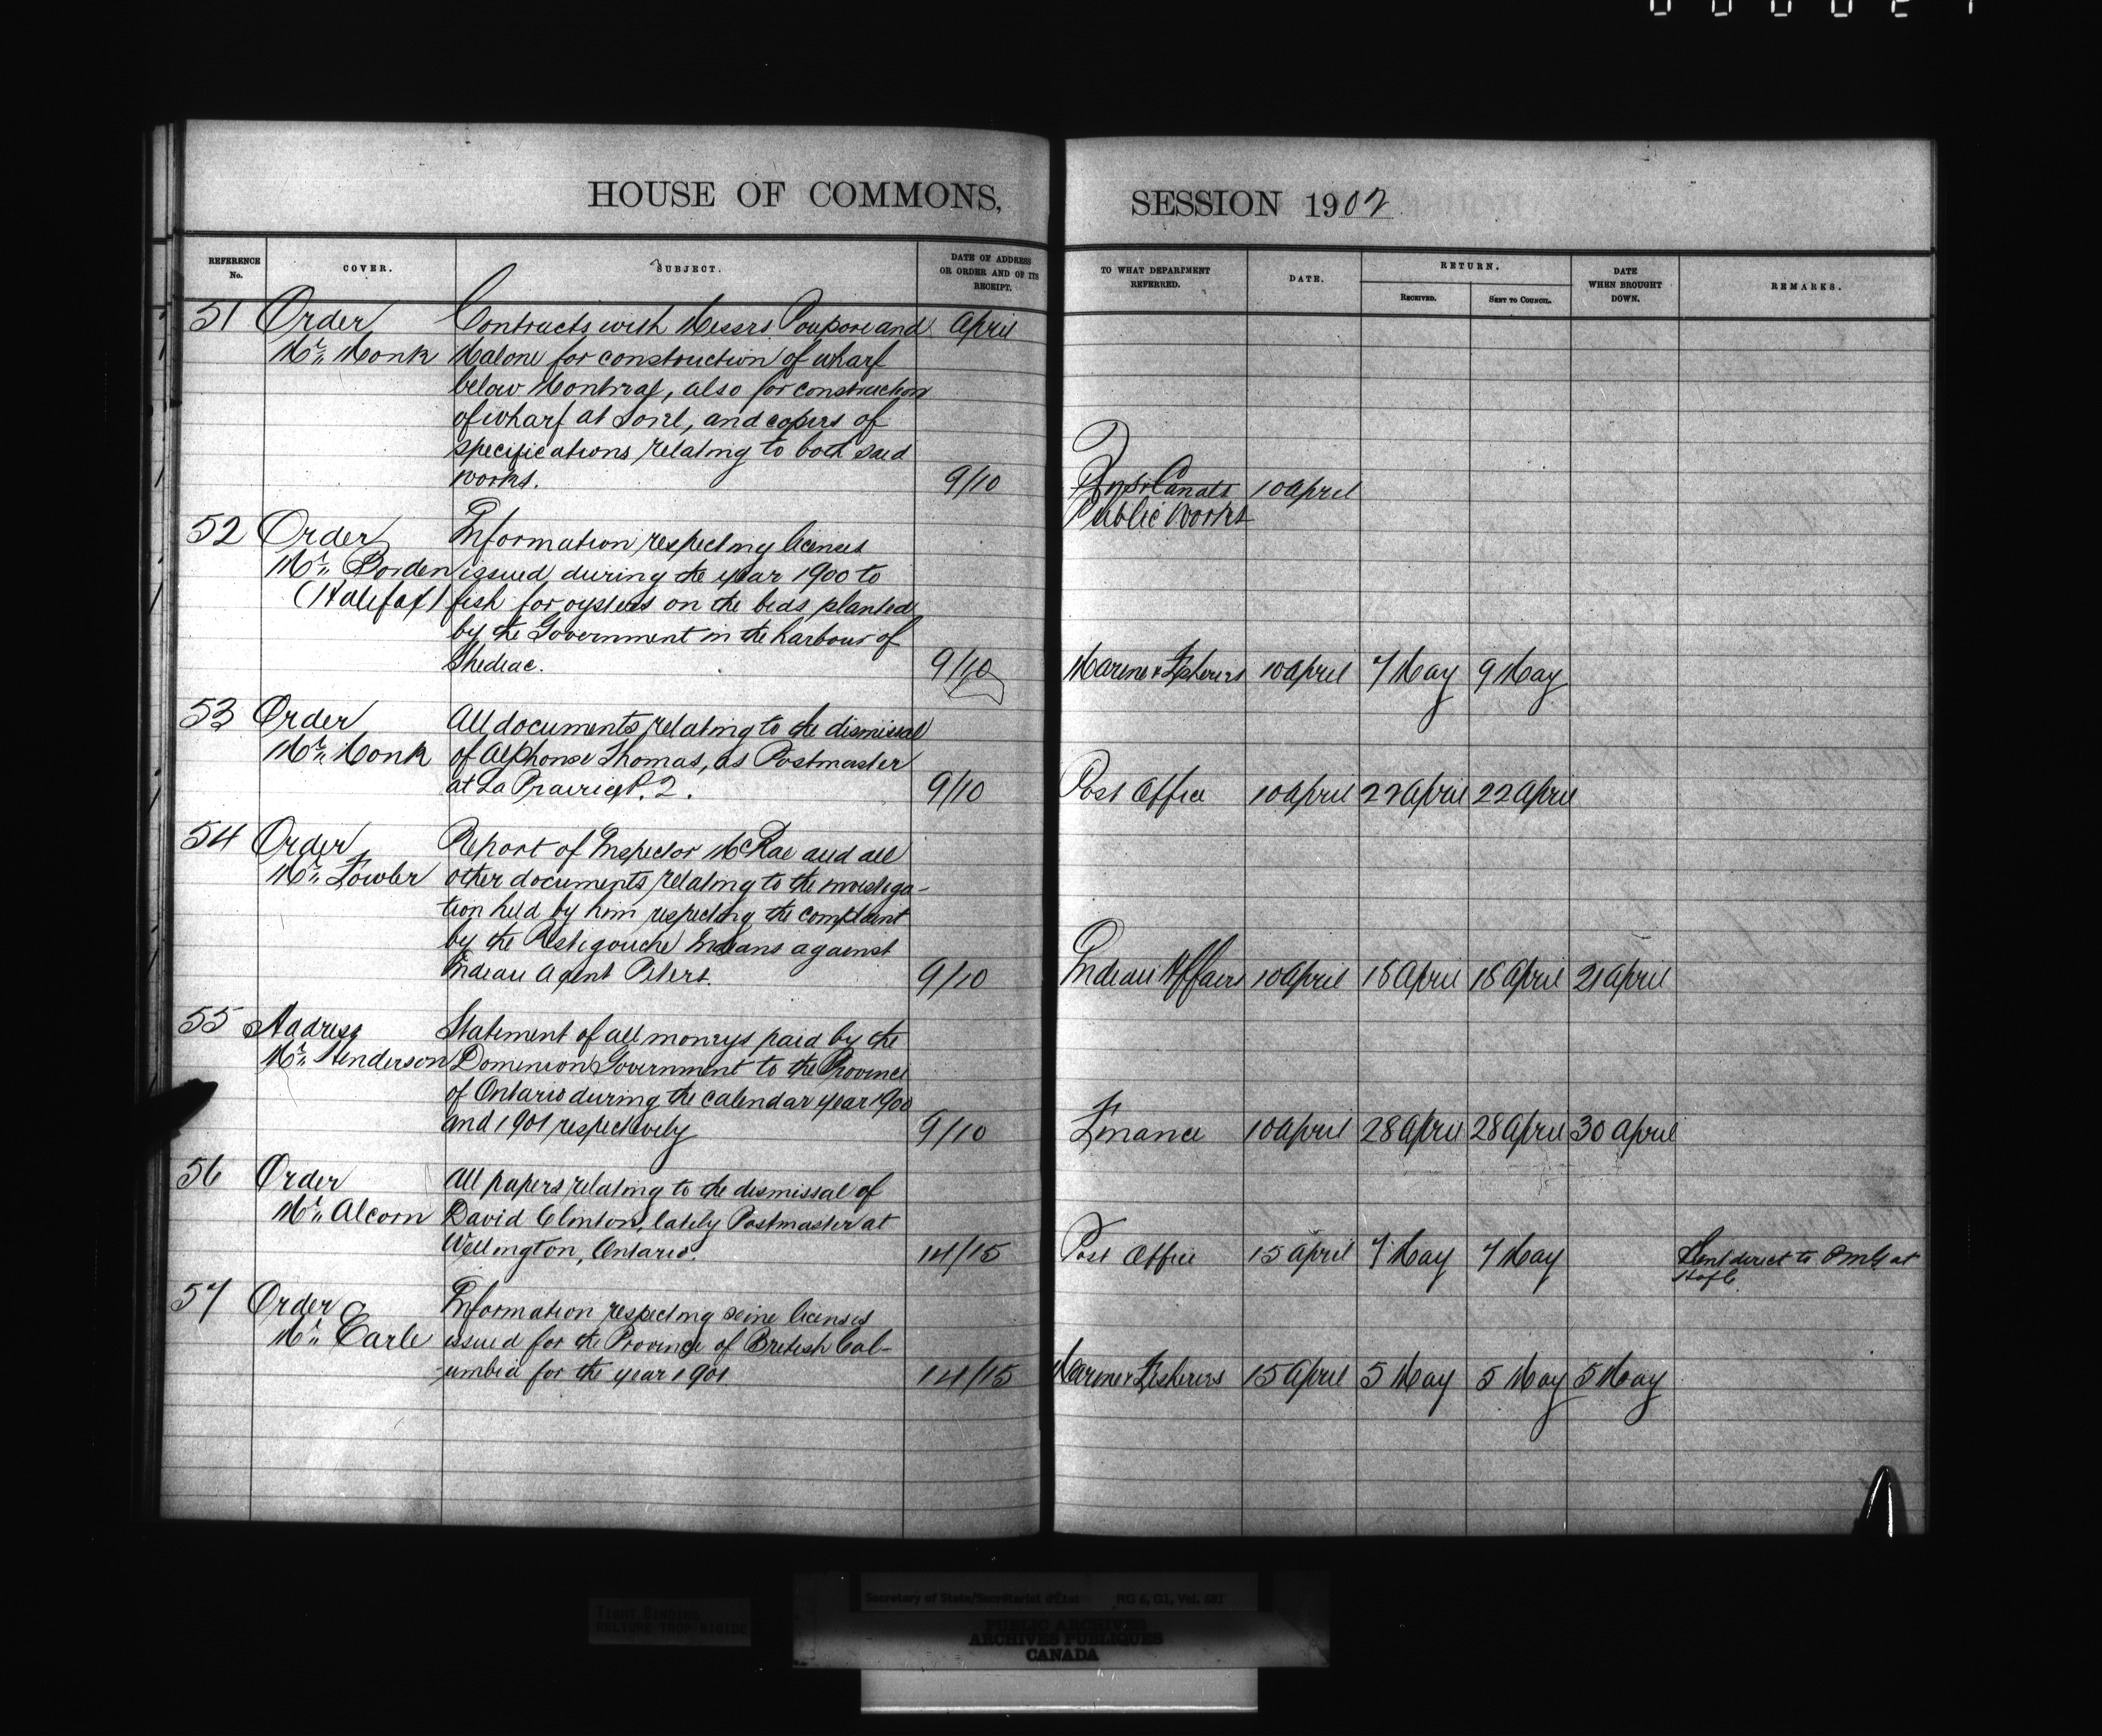 HOUSE OF COMMONS,
REFERENCE No.
COVER.
SUBJECT.
DATE OF ADDRESS OR ORDER AND OF ITS RECEIPT.
51 Order Contracts with Messrs Poupore and April
Mr. Monk Malone for construction of wharf
below Montreal, also for construction
of wharf at Sorel, and copies of
specifications relating to both said
works. 9/10
52 Order Information respecting licenses
Mr. Borden issued during the year 1900 to
(Halifax) fish for oysters on the beds planted
by the Government in the harbour of
Shediac. 9/10
53 Order All documents relating to the dismissal
Mr. Monk of Alphonse Thomas, as Postmaster
at La Prairie P.2. 9/10
54 Order Report of Inspector McRae and all
Mr. Fowler other documents relating to the investiga-
tion held by him respecting the complaint
by the Restigouche Indians against
Indian Agent Peters. 9/10
55 Address Statement of all moneys paid by the
Mr. Henderson Dominion Government to the Province
of Ontario during the calendar year 1900
and 1901 respectively 9/10
56 Order All papers relating to the dismissal of
Mr. Alcorn David Clinton, lately Postmaster at
Wellington, Ontario. 14/15
57 Order Information respecting seine licenses
Mr. Earle issued for the Province of British Col-
-umbia for the year 1901 14/15
SESSION 1902
TO WHAT DEPARTMENT REFERRED.
DATE.
RETURN.
RECEIVED.
SENT TO COUNCIL.
DATE WHEN BROUGHT DOWN.
REMARKS.
Canals 10 April
Public Works
Marine & Fisheries 10 April 7 May 9 May
Post Office 10 April 22 April 22 April
Indian Affairs 10 April 18 April 18 April 21 April
Finance 10 April 28 April 28 April 30 April
Post Office 15 April 7 May 7 May Sent direct to PMG at
HofC.
Marine & Fisheries 15 April 5 May 5 May 5 May
TIGHT BINDING
RELIURE TROP RIGIDE
Secretary of State/Secrétariat d'État RG 6, D1, Vol. 681
PUBLIC ARCHIVES
ARCHIVES PUBLIQUES
CANADA